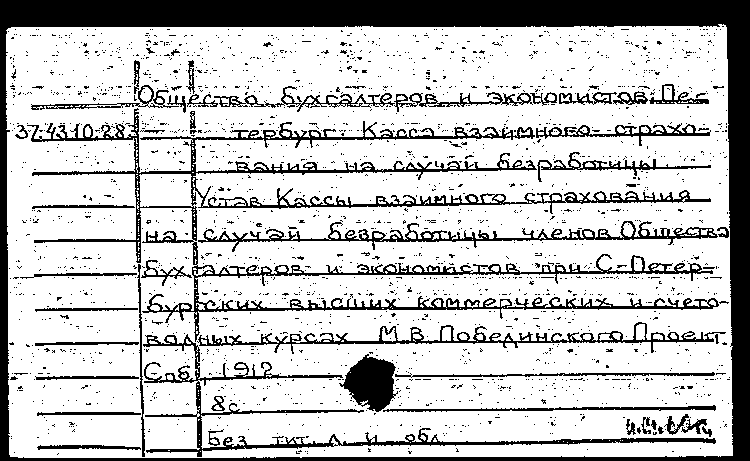 Общество бухгалтеров и экономистов. Пе-
37.43.10.283 — тербург. Касса взаимного страхо-
вания на случай безработицы
Устав Кассы взаимного страхования
на случай безработицы членов Общества
бухгалтеров и экономистов при С-Петер-
бургских высших коммерческих и счето-
водных курсах М.В. Побединского. Проект
Спб, 1912
8с.
Без тит. л. и обл.